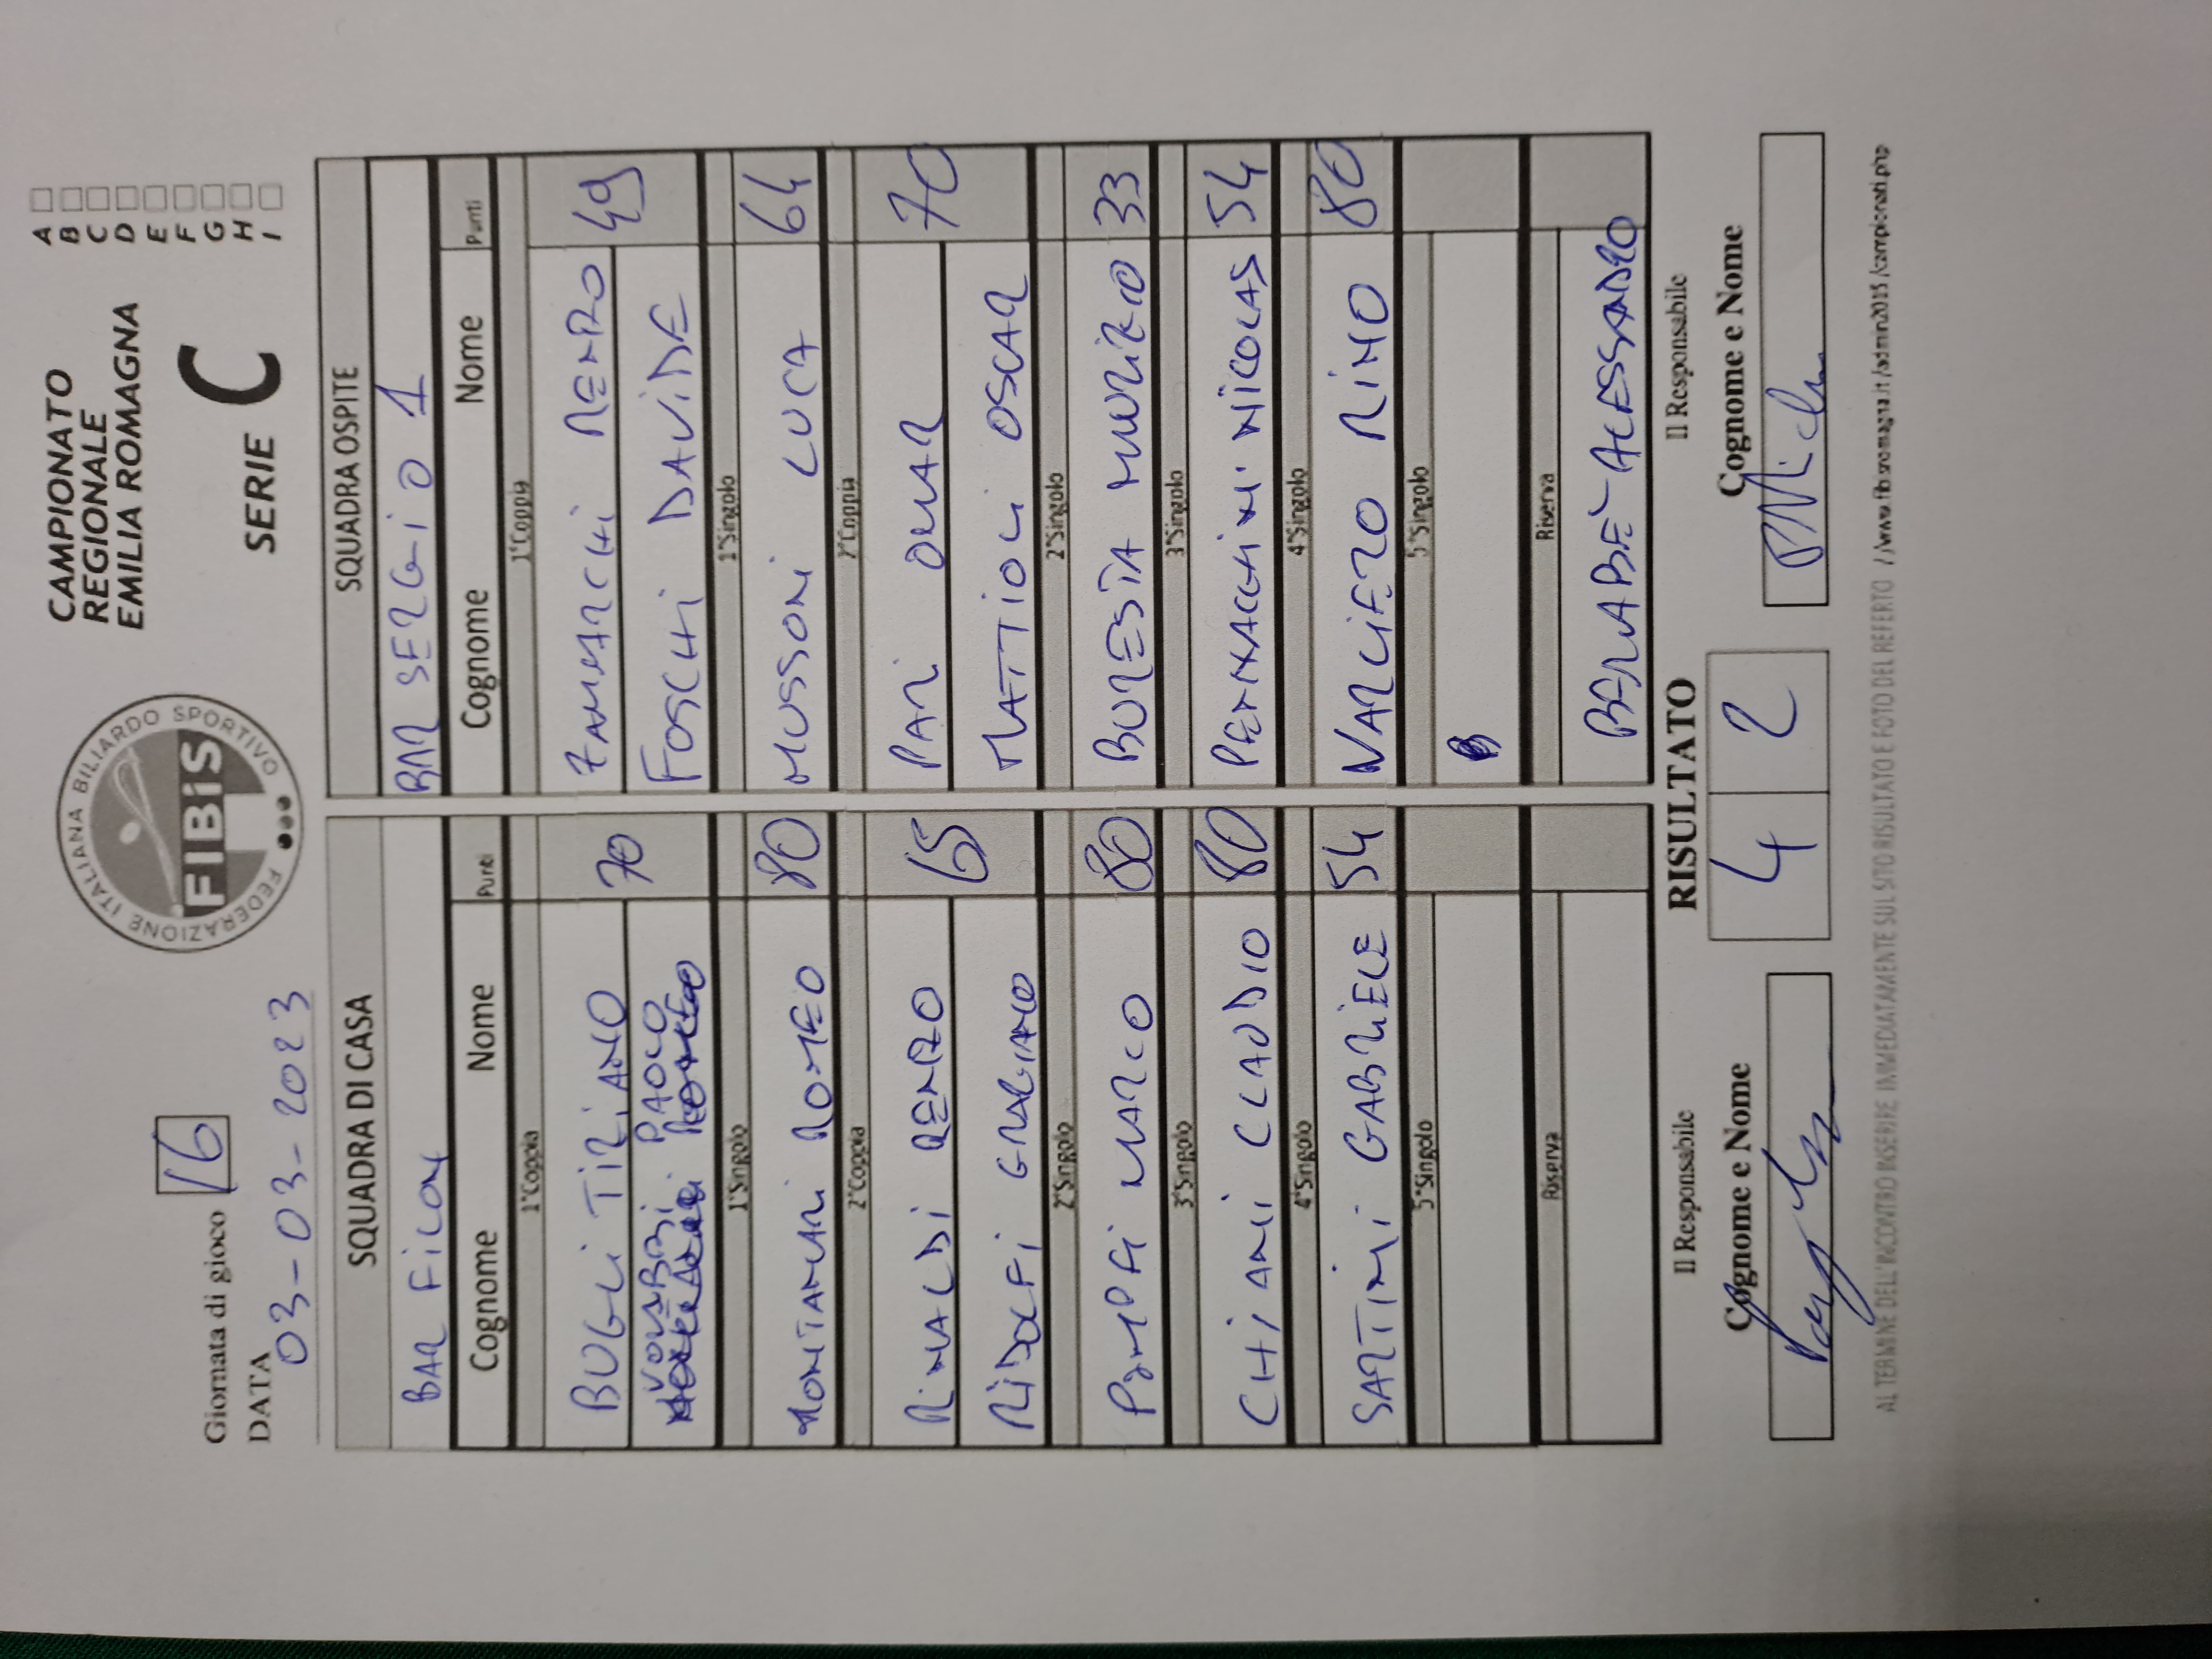 Giornata di gioco 16
DATA
03-03-2023
FEDERAZIONE ITALIANA BILIARDO SPORTIVO
FIBiS
CAMPIONATO
REGIONALE
EMILIA ROMAGNA
SERIE C
A
B
C
D
E
F
G
H
I
SQUADRA DI CASA
BAR FILON
Cognome Nome Punti
1°Coppia
BUGLI TIZIANO 70
PAOLO
1°Singolo
MONTANARI ROMEO 80
2°Coppia
RINALDI RENZO 65
RIDOLFI GRAZIANO
2°Singolo
POMPEI MARCO 80
3°Singolo
CHIARI CLAUDIO 80
4°Singolo
SARTINI GABRIELE 54
5°Singolo
Riserva
SQUADRA OSPITE
BAR SERGIO 1
Cognome Nome Punti
1°Coppia
ZAMARCHI RENZO 49
FOSCHI DAVIDE
1°Singolo
MUSSONI LUCA 64
2°Coppia
PARI OMAR 70
MATTIOLI OSCAR
2°Singolo
BURESTA MAURIZIO 33
3°Singolo
PENNACCHINI NICOLAS 54
4°Singolo
VARLIERO RINO 80
5°Singolo
Riserva
BERNABE' ALESSANDRO
RISULTATO
4 2
Il Responsabile
Cognome e Nome
Il Responsabile
Cognome e Nome
AL TERMINE DELL'INCONTRO INSERIRE IMMEDIATAMENTE SUL SITO RISULTATO E FOTO DEL REFERTO